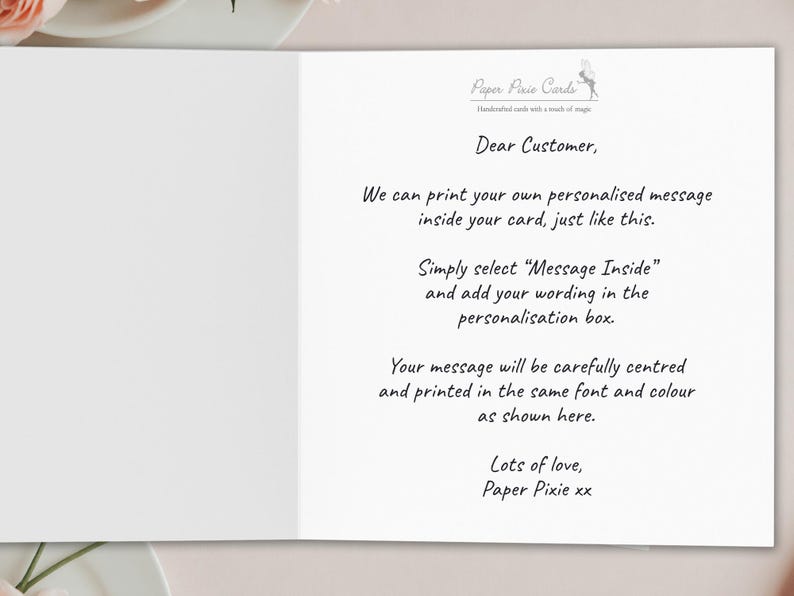 Paper Pixie Cards
Handcrafted cards with a touch of magic
Dear Customer,
We can print your own personalised message
inside your card, just like this.
Simply select “Message Inside”
and add your wording in the
personalisation box.
Your message will be carefully centred
and printed in the same font and colour
as shown here.
Lots of love,
Paper Pixie xx